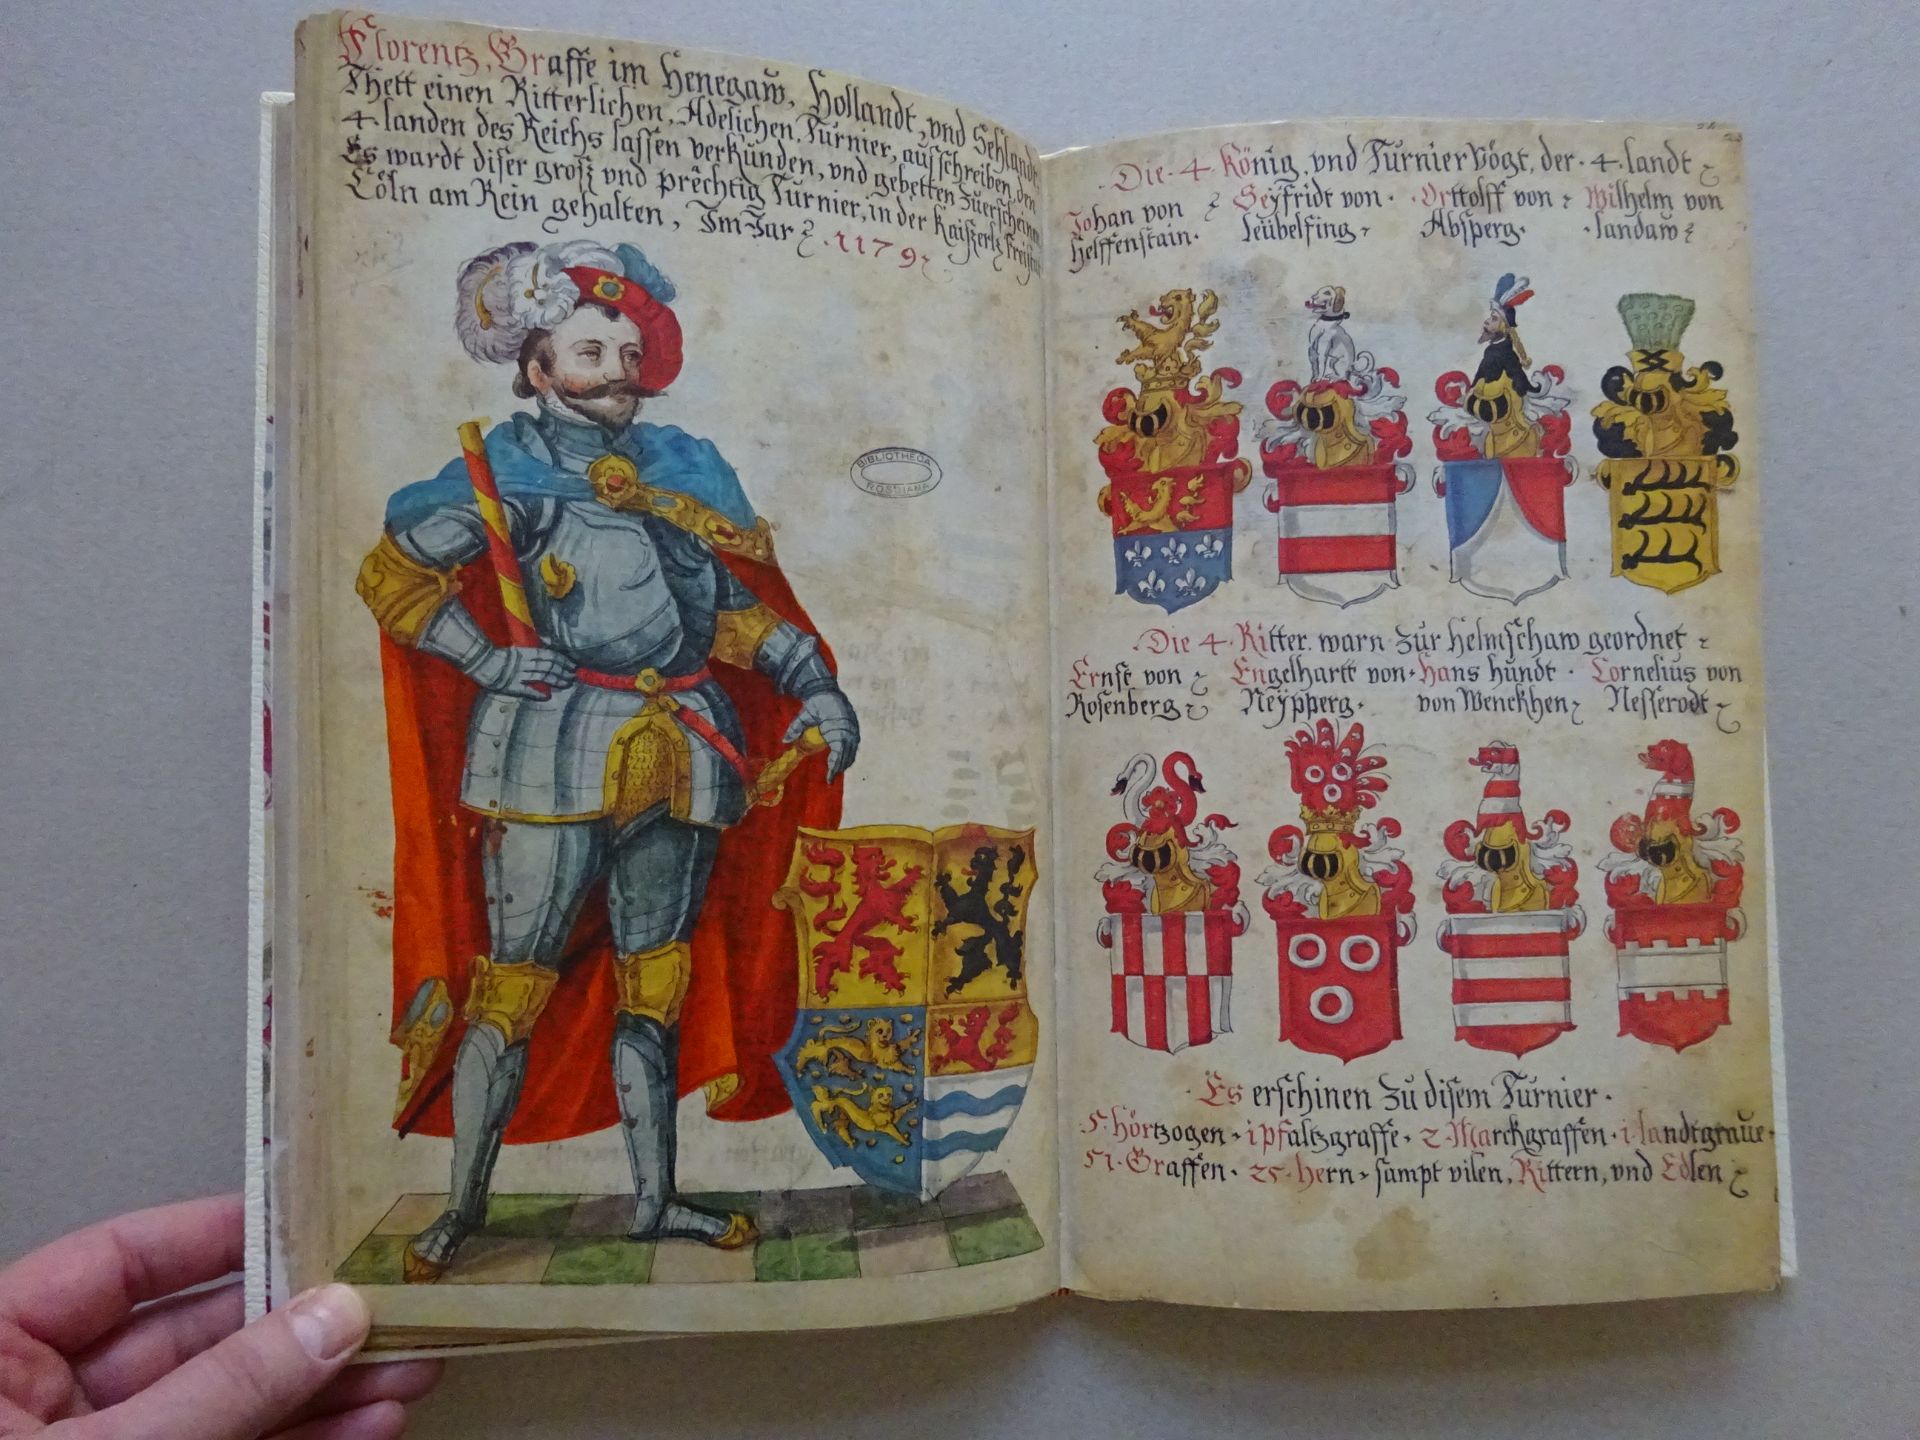 Florentz, Graffe im Henegaw, Hollandt, vnd Sehlandt,
Thett einen Ritterlichen, Adelichen, Turnier, ausschreiben, den
4. landen des Reichs lassen verkunden, vnd gebetten zuerscheinen,
Es wardt diser groß vnd prêchtig Turnier, in der Kaißerlz
Cöln am Rein gehalten, Im Jar 1179
BIBLIOTHECA
ROSSIANA
Die 4 König, vnd Turnier Vögt, der 4. landt
Johan von
Helffenstain.
Seÿfridt von
Leübelfing
Orttolff von
Absperg.
Wilhelm von
landaw
Die 4 Ritter, warn zur Helmschaw geordnet
Ernst von
Rosenberg
Engelhartt von
Neÿpperg.
Hans hundt
von Wenckhen
Cornelius von
Nesserodt
Es erschinen zu disem Turnier.
5. hörtzogen. 1 pfaltzgraffe. 2 Marckgraffen. 1. landtgraue.
51. Graffen. 25. hern. sampt vilen, Rittern, vnd Edlen